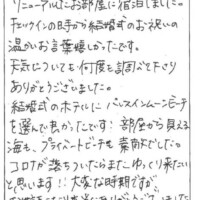 リニューアルしたお部屋に宿泊しました。
チェックインの時から結婚式のお祝いの
温かいお言葉嬉しかったです。
天気についても何度も調べて下さり
ありがとうございました。
結婚式のホテルにバッスインムーンビーチ
を選んで良かったです! 部屋から見える
海も、プライベートビーチも素敵でした。
コロナが落ちついたらまたゆっくり来たい
と思います!! 大変な時期ですが、
ありがとうございました